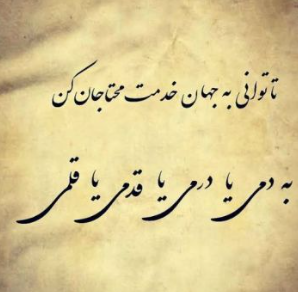 تا توانی به جهان خدمت محتاجان کن
به دمی یا درمی یا قدمی یا قلمی